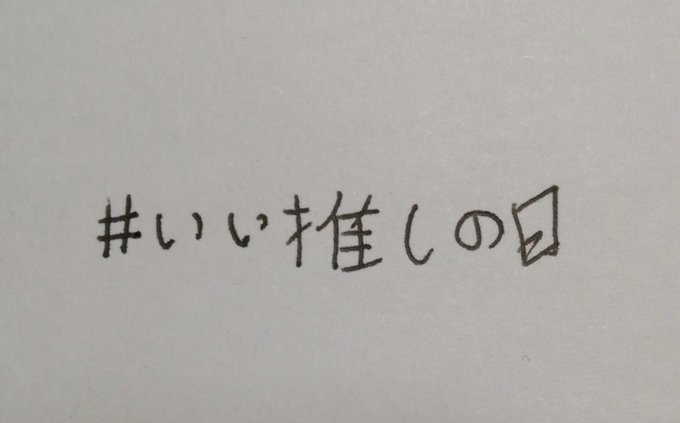 #いい推しの日